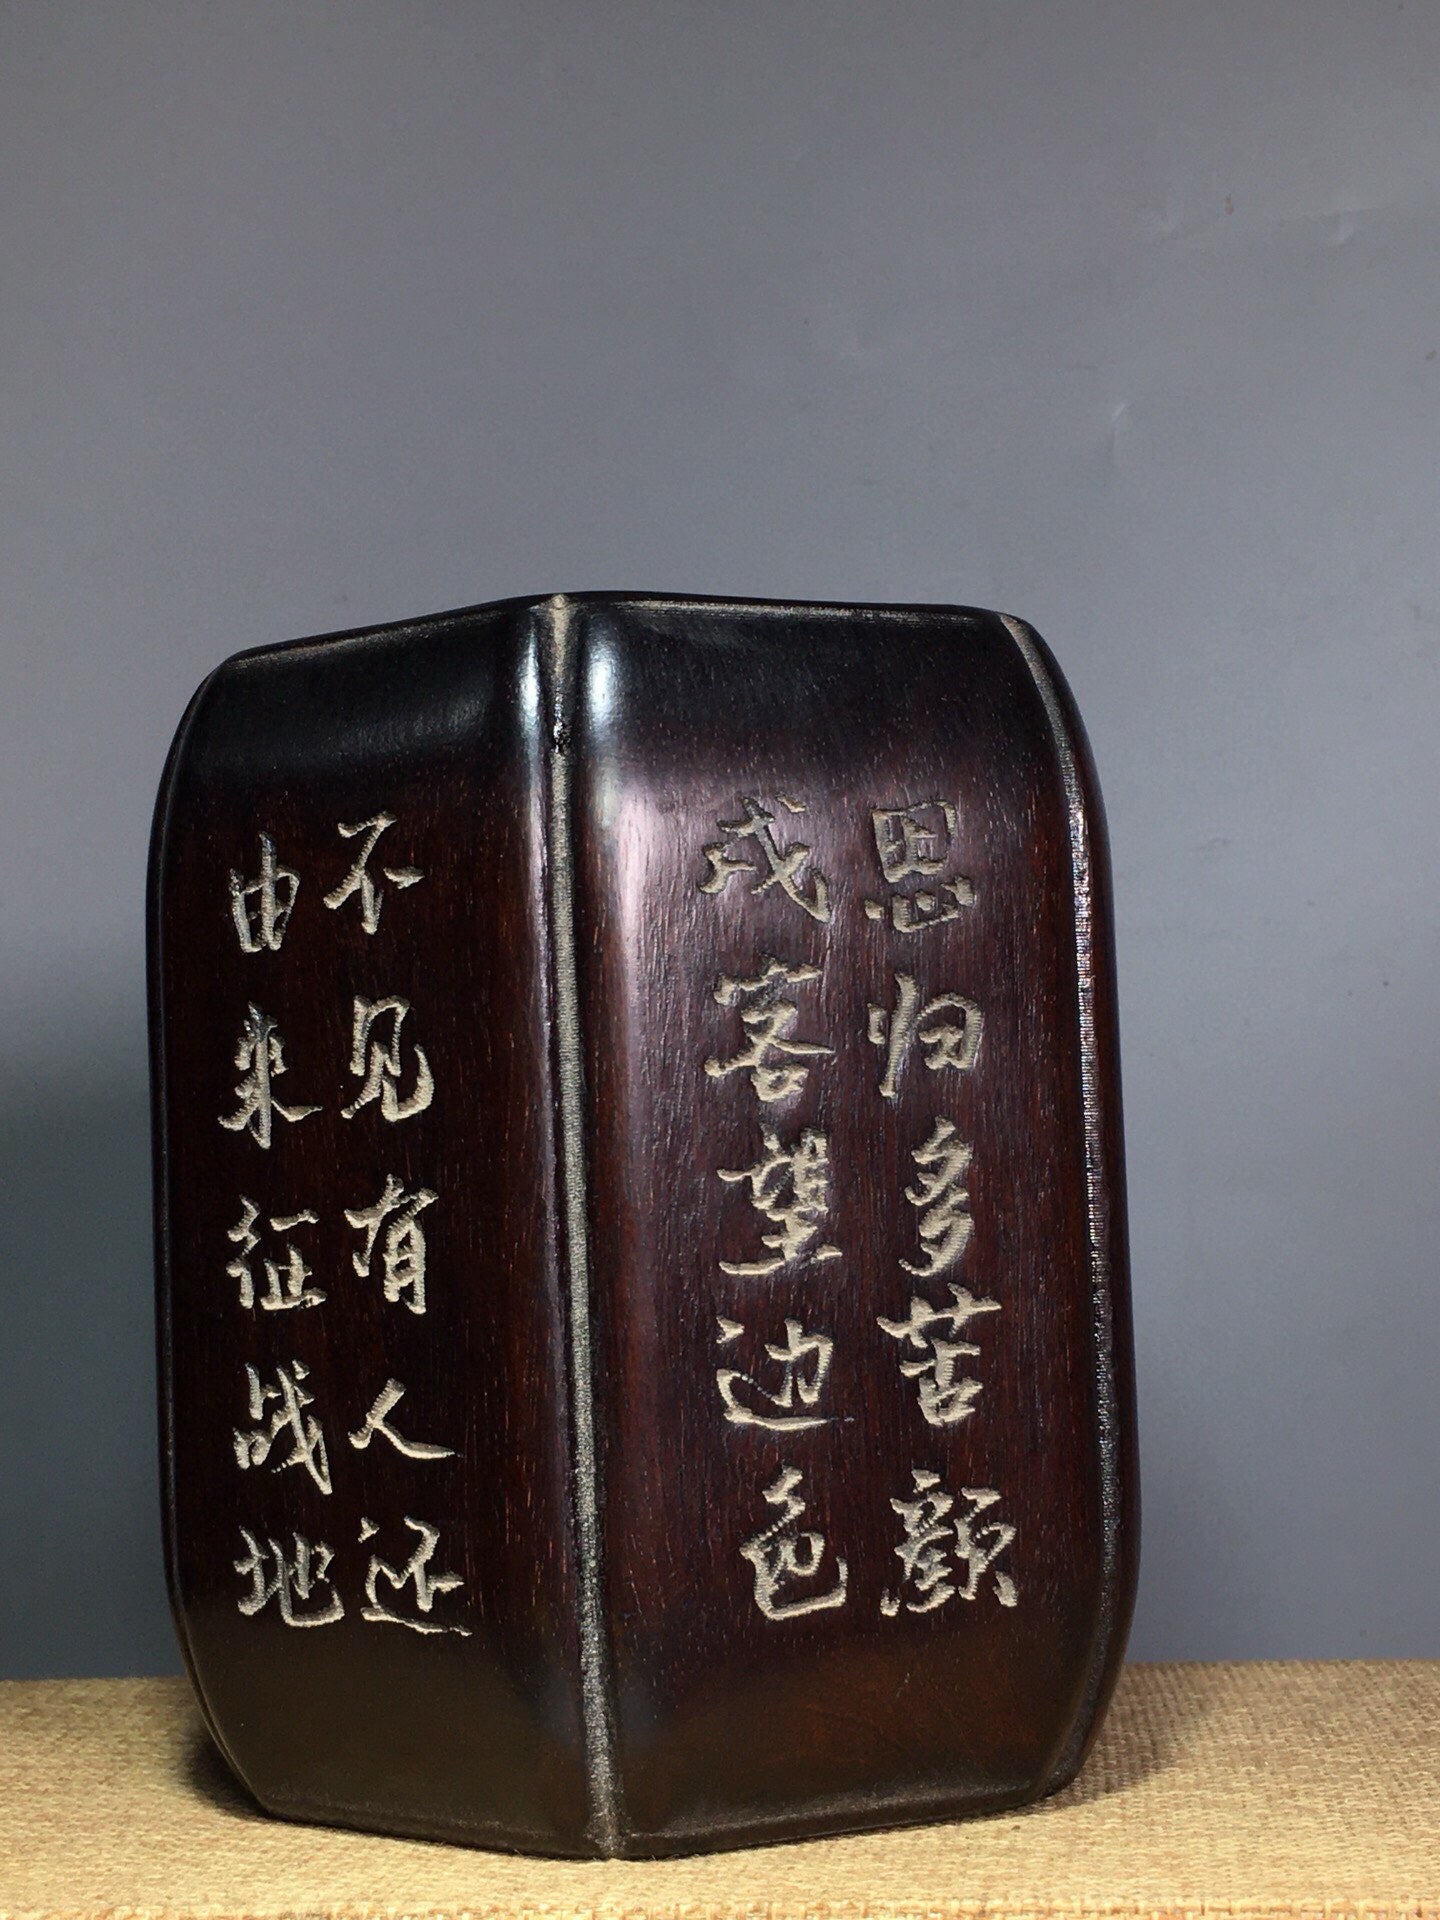 由来征战地
不见有人还
戍客望边色
思归多苦颜